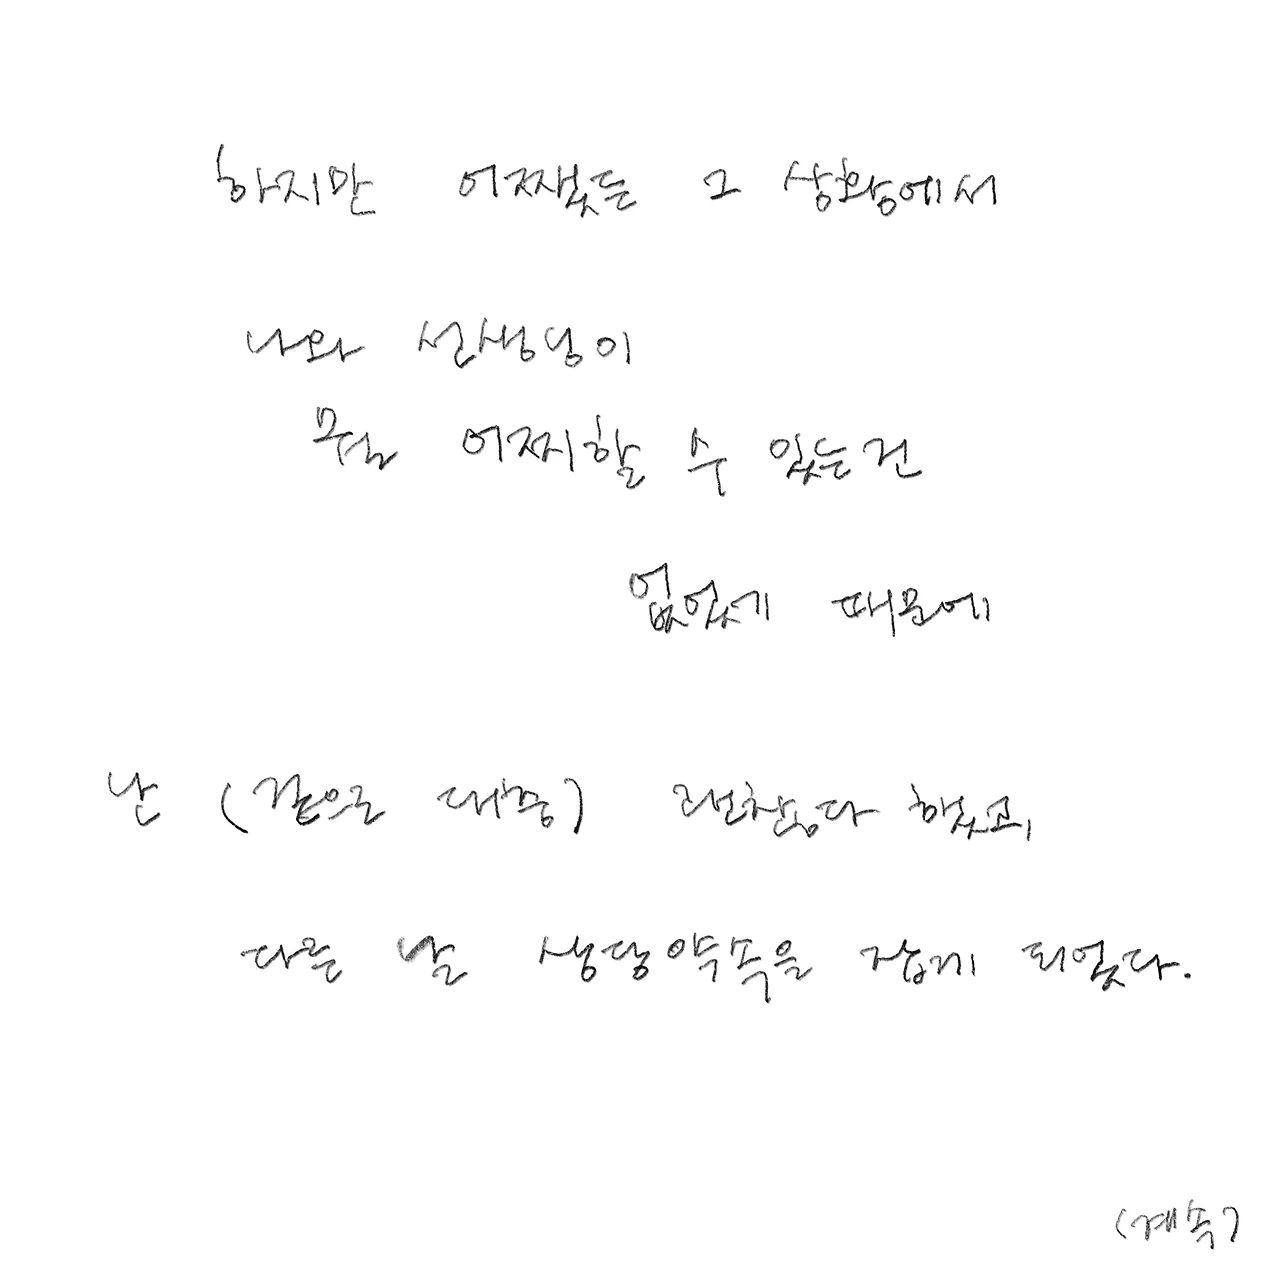 하지만 어쨌든 그 상황에서
나와 선생님이
뭘 어찌할 수 있는건
없었기 때문에
난 (겉으로 대충) 괜찮다 했고,
다른 날 상담약속을 잡게 되었다.
(계속)